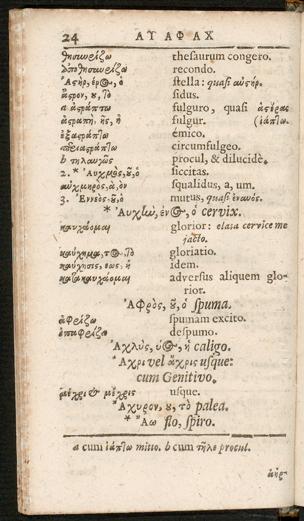 24 ΑΥ ΑΦ ΑΧ
θησαυρίζω thesaurum congero.
ἀποθησαυρίζω recondo.
Ἀςὴρ, έρ⊙, ὁ stella: quasi αὐςήρ.
ἄςρον, ου, τὸ sidus.
a ἀςράπτω fulguro, quasi ἀςέρας
ἀςραπὴ, ῆς, ἡ fulgur. (ἰάπτω.
ἐξαςράπτω émico.
περιαςράπτω circumfulgeo.
b τηλαυγῶς procul, & dilucidè.
2. * Αὐχμὸς, οῦ, ὁ siccitas.
αὐχμηρὸς, ὰ, ὸν squalidus, a, um.
3. Ἐννεὸς, οῦ, ὁ mutus, quasi ἐναυὸς.
* Αὐχὴν, έν⊙, ὁ cervix.
καυχάομαι glorior: elata cervice me
jacto.
καύχημα, τ⊙, τὸ gloriatio.
καύχησις, εως, ἡ idem.
κατακαυχάομαι adversus aliquem glo-
rior.
Ἀφρὸς, οῦ, ὁ spuma.
ἀφρίζω spumam excito.
ἐπαφρίζω despumo.
Ἀχλὺς, ύ⊙, ἡ caligo.
*Ἄχρι vel ἄχρις usque:
cum Genitivo.
μέχρι & μέχρις usque.
*Ἄχυρον, ου, τὸ palea.
* Ἄω flo, spiro.
a cum ἰάπτω mitto. b cum τῆλε procul.
ἀὴρ